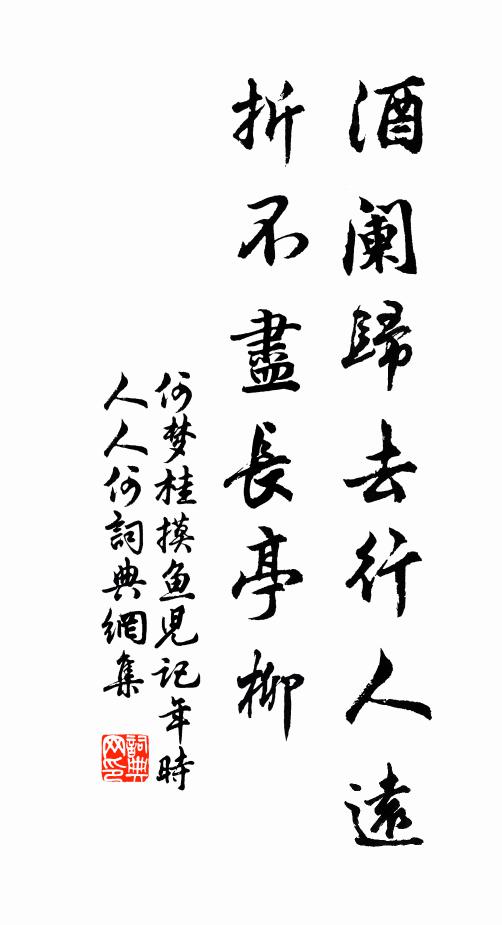 酒阑歸去行人遠
折不盡長亭柳
何梦桂摸鱼児記年時
人人何詞典網集
詞典
网印